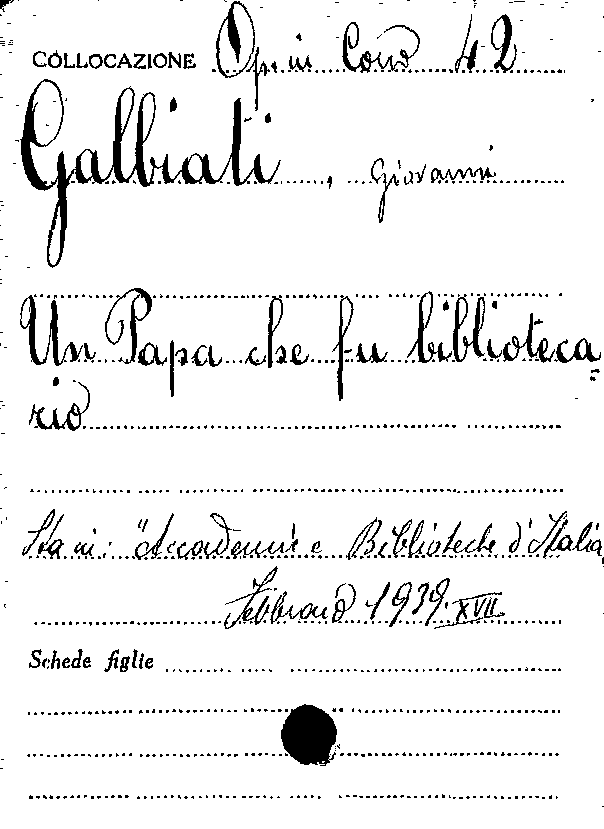 COLLOCAZIONE Op. in Cons 42
Galbiati, Giovanni
Un Papa che fu biblioteca=
rio
Sta in: "Accademie e Biblioteche d'Italia
Febbraio 1939. XVII
Schede figlie